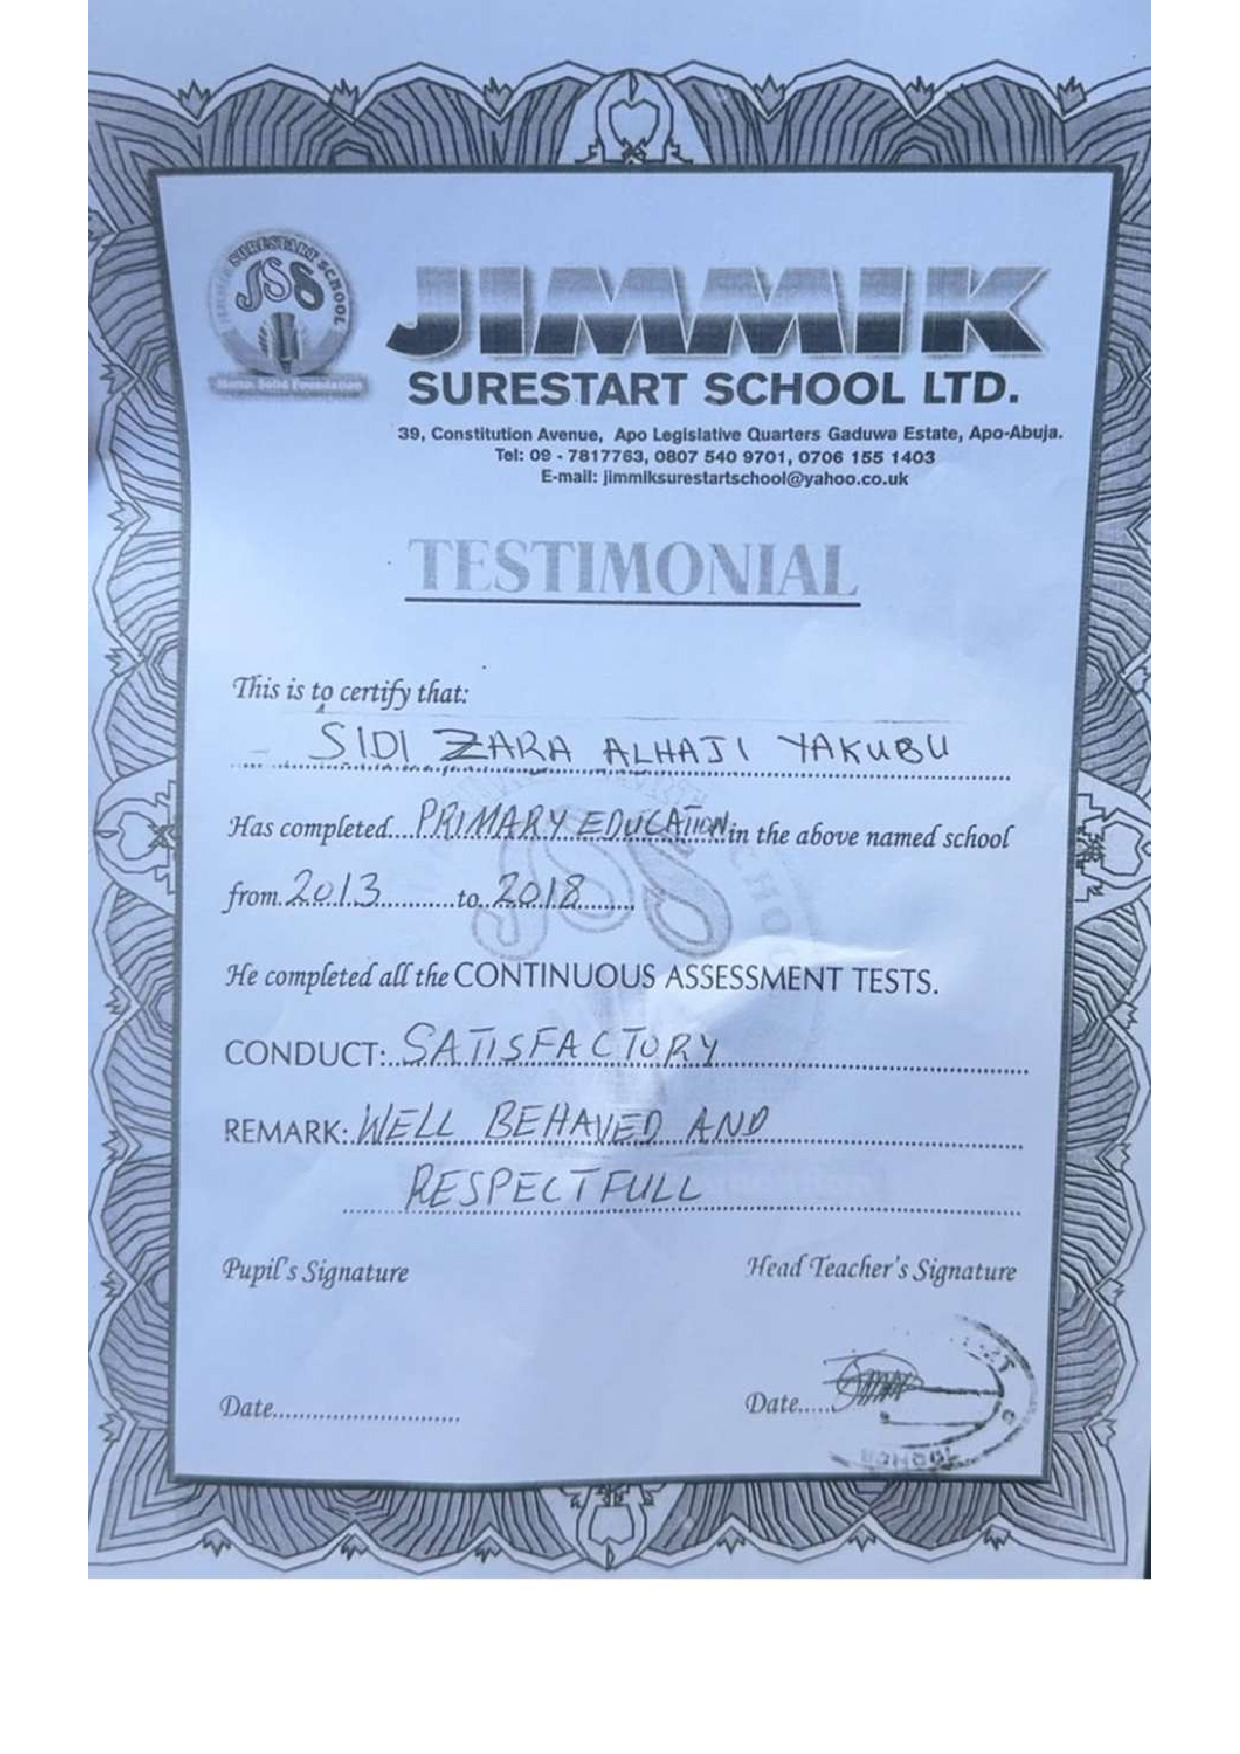 SURESTART SCHOOL
JSS
JIMMIK
SURESTART SCHOOL LTD.
39, Constitution Avenue, Apo Legislative Quarters Gaduwa Estate, Apo-Abuja.
Tel: 09 - 7817763, 0807 540 9701, 0706 155 1403
E-mail: jimmiksurestartschool@yahoo.co.uk
TESTIMONIAL
This is to certify that:
SIDI ZARA ALHAJI YAKUBU
Has completed PRIMARY EDUCATION in the above named school
from 2013 to 2018
He completed all the CONTINUOUS ASSESSMENT TESTS.
CONDUCT: SATISFACTORY
REMARK: WELL BEHAVED AND
RESPECTFULL
Pupil's Signature Head Teacher's Signature
Date Date
SCHOOL